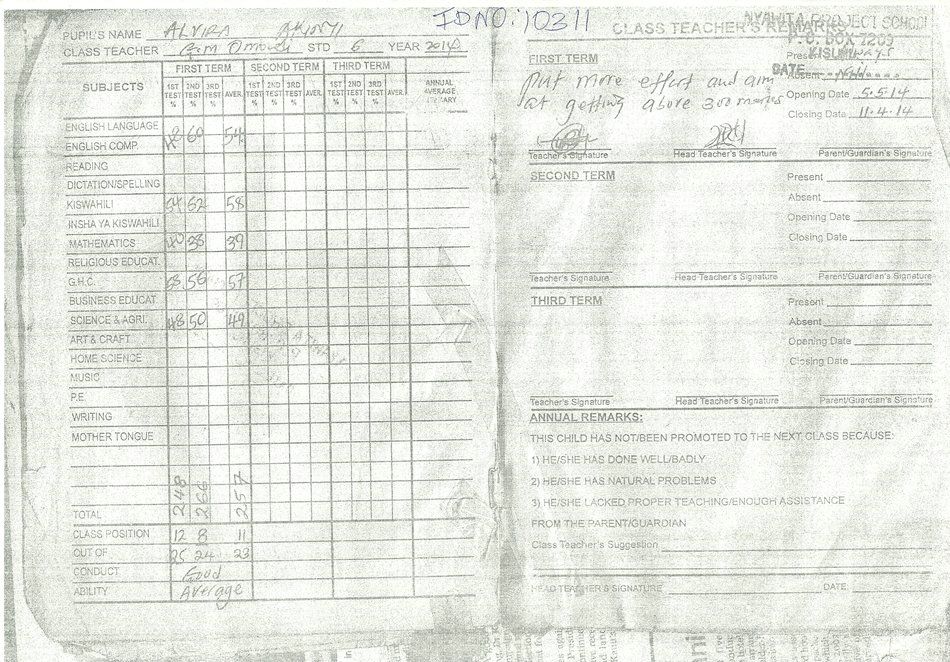 ID NO: 10311
PUPIL'S NAME ALVIRA AKINYI
CLASS TEACHER Omondi STD 6 YEAR 2014
SUBJECTS FIRST TERM SECOND TERM THIRD TERM ANNUAL AVERAGE
1ST TEST % 2ND TEST % 3RD TEST % AVER. 1ST TEST % 2ND TEST % 3RD TEST % AVER. 1ST TEST % 2ND TEST % 3RD TEST % AVER.
ENGLISH LANGUAGE
ENGLISH COMP. 48 60 54
READING
DICTATION/SPELLING
KISWAHILI 54 62 58
INSHA YA KISWAHILI
MATHEMATICS 40 38 39
RELIGIOUS EDUCAT.
G.H.C. 58 56 57
BUSINESS EDUCAT
SCIENCE & AGRI. 48 50 49
ART & CRAFT
HOME SCIENCE
MUSIC
P.E.
WRITING
MOTHER TONGUE
TOTAL 248 266 257
CLASS POSITION 12 8 11
OUT OF 25 24 23
CONDUCT Good
ABILITY Average
NYAWITA PROJECT SCHOOL
CLASS TEACHER'S REMARKS
P.O. BOX 7269
KISUMU
DATE
FIRST TERM
Present
Absent
put more effort and aim
at getting above 300 marks
Opening Date 5.5.14
Closing Date 11.4.14
Teacher's Signature Head Teacher's Signature Parent/Guardian's Signature
SECOND TERM
Present
Absent
Opening Date
Closing Date
Teacher's Signature Head Teacher's Signature Parent/Guardian's Signature
THIRD TERM
Present
Absent
Opening Date
Closing Date
Teacher's Signature Head Teacher's Signature Parent/Guardian's Signature
ANNUAL REMARKS:
THIS CHILD HAS NOT/BEEN PROMOTED TO THE NEXT CLASS BECAUSE:
1) HE/SHE HAS DONE WELL/BADLY
2) HE/SHE HAS NATURAL PROBLEMS
3) HE/SHE LACKED PROPER TEACHING/ENOUGH ASSISTANCE
FROM THE PARENT/GUARDIAN
Class Teacher's Suggestion
HEAD TEACHER'S SIGNATURE DATE